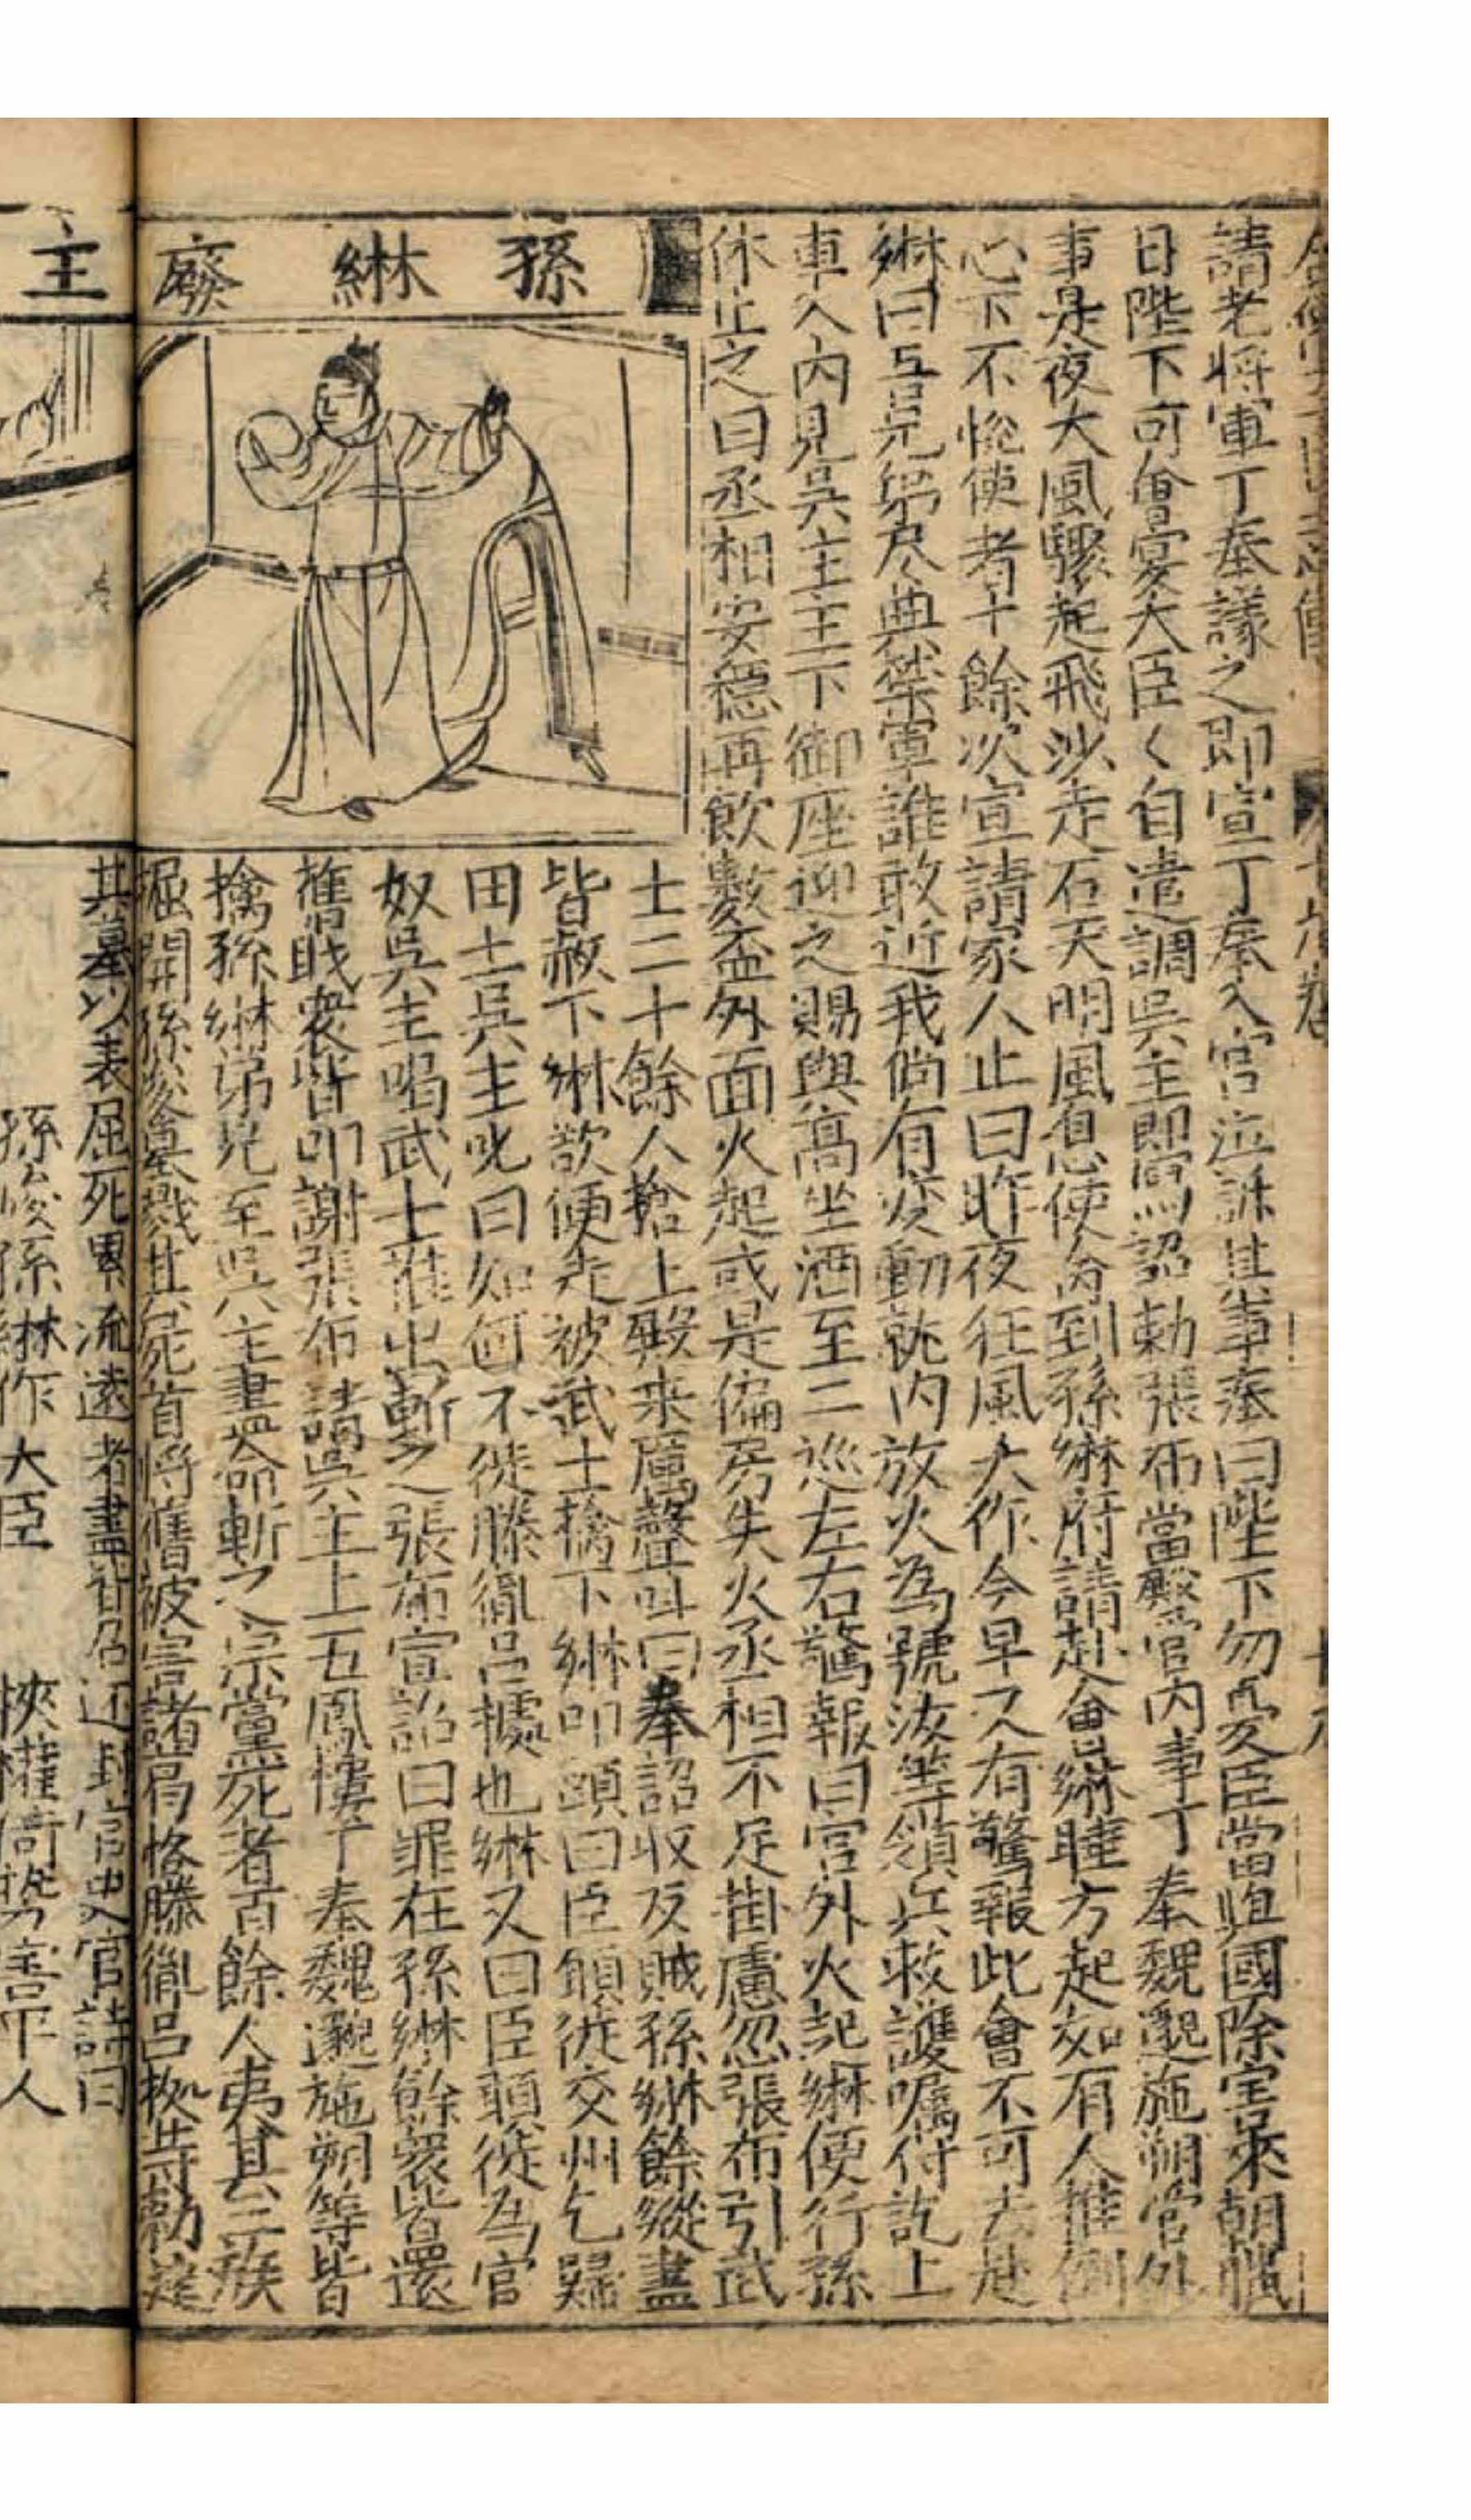 請老將軍丁奉議之即宣丁奉入宮泣訴其事奉曰陛下勿憂臣當與國除害來朝臘
日陛下可會宴大臣く自遣調吳主即寫詔勅張布當殿官內事丁奉魏邈施朔管外
事是夜大風驟起飛沙走石天明風息使命到孫綝府請赴會綝睡方起如有人推倒
心下不悅使者十餘次宣請家人止曰昨夜狂風大作今早又有驚報此會不可去赴
綝曰吾兄弟尽典禁軍誰敢近我倘有变動就內放火為號汝等領兵救護囑付訖上
車入內見吳主主下御座迎之賜與高坐酒至二巡左右驚報曰宮外火起綝便行孫
休止之曰丞相安穩再飲數盃外面火起或是偏房失火丞相不足掛慮忽張布引武
孫綝廢
士二十餘人搶上殿来厲聲叫曰奉詔収反賊孫綝餘縱盡
皆赦下綝欲便走被武士擒下綝叩頭曰臣願徙交州乞歸
田土吳主叱曰如何不徙滕胤呂據也綝又曰臣願徙為官
奴吳主喝武士推出斬之張布宣詔曰罪在孫綝餘衆皆還
舊職衆皆叩謝張布請吳主上五鳳樓丁奉魏邈施朔等皆
擒孫綝弟兄至吳主盡命斬之宗黨死者百餘人夷其三族
掘開孫峻墓戮其屍首將舊被害諸葛恪滕胤呂據等勅建
主
其墓以表屈死累流遠者盡皆召还封官史官詩曰
孫峻孫綝作大臣　挾權倚勢害平人